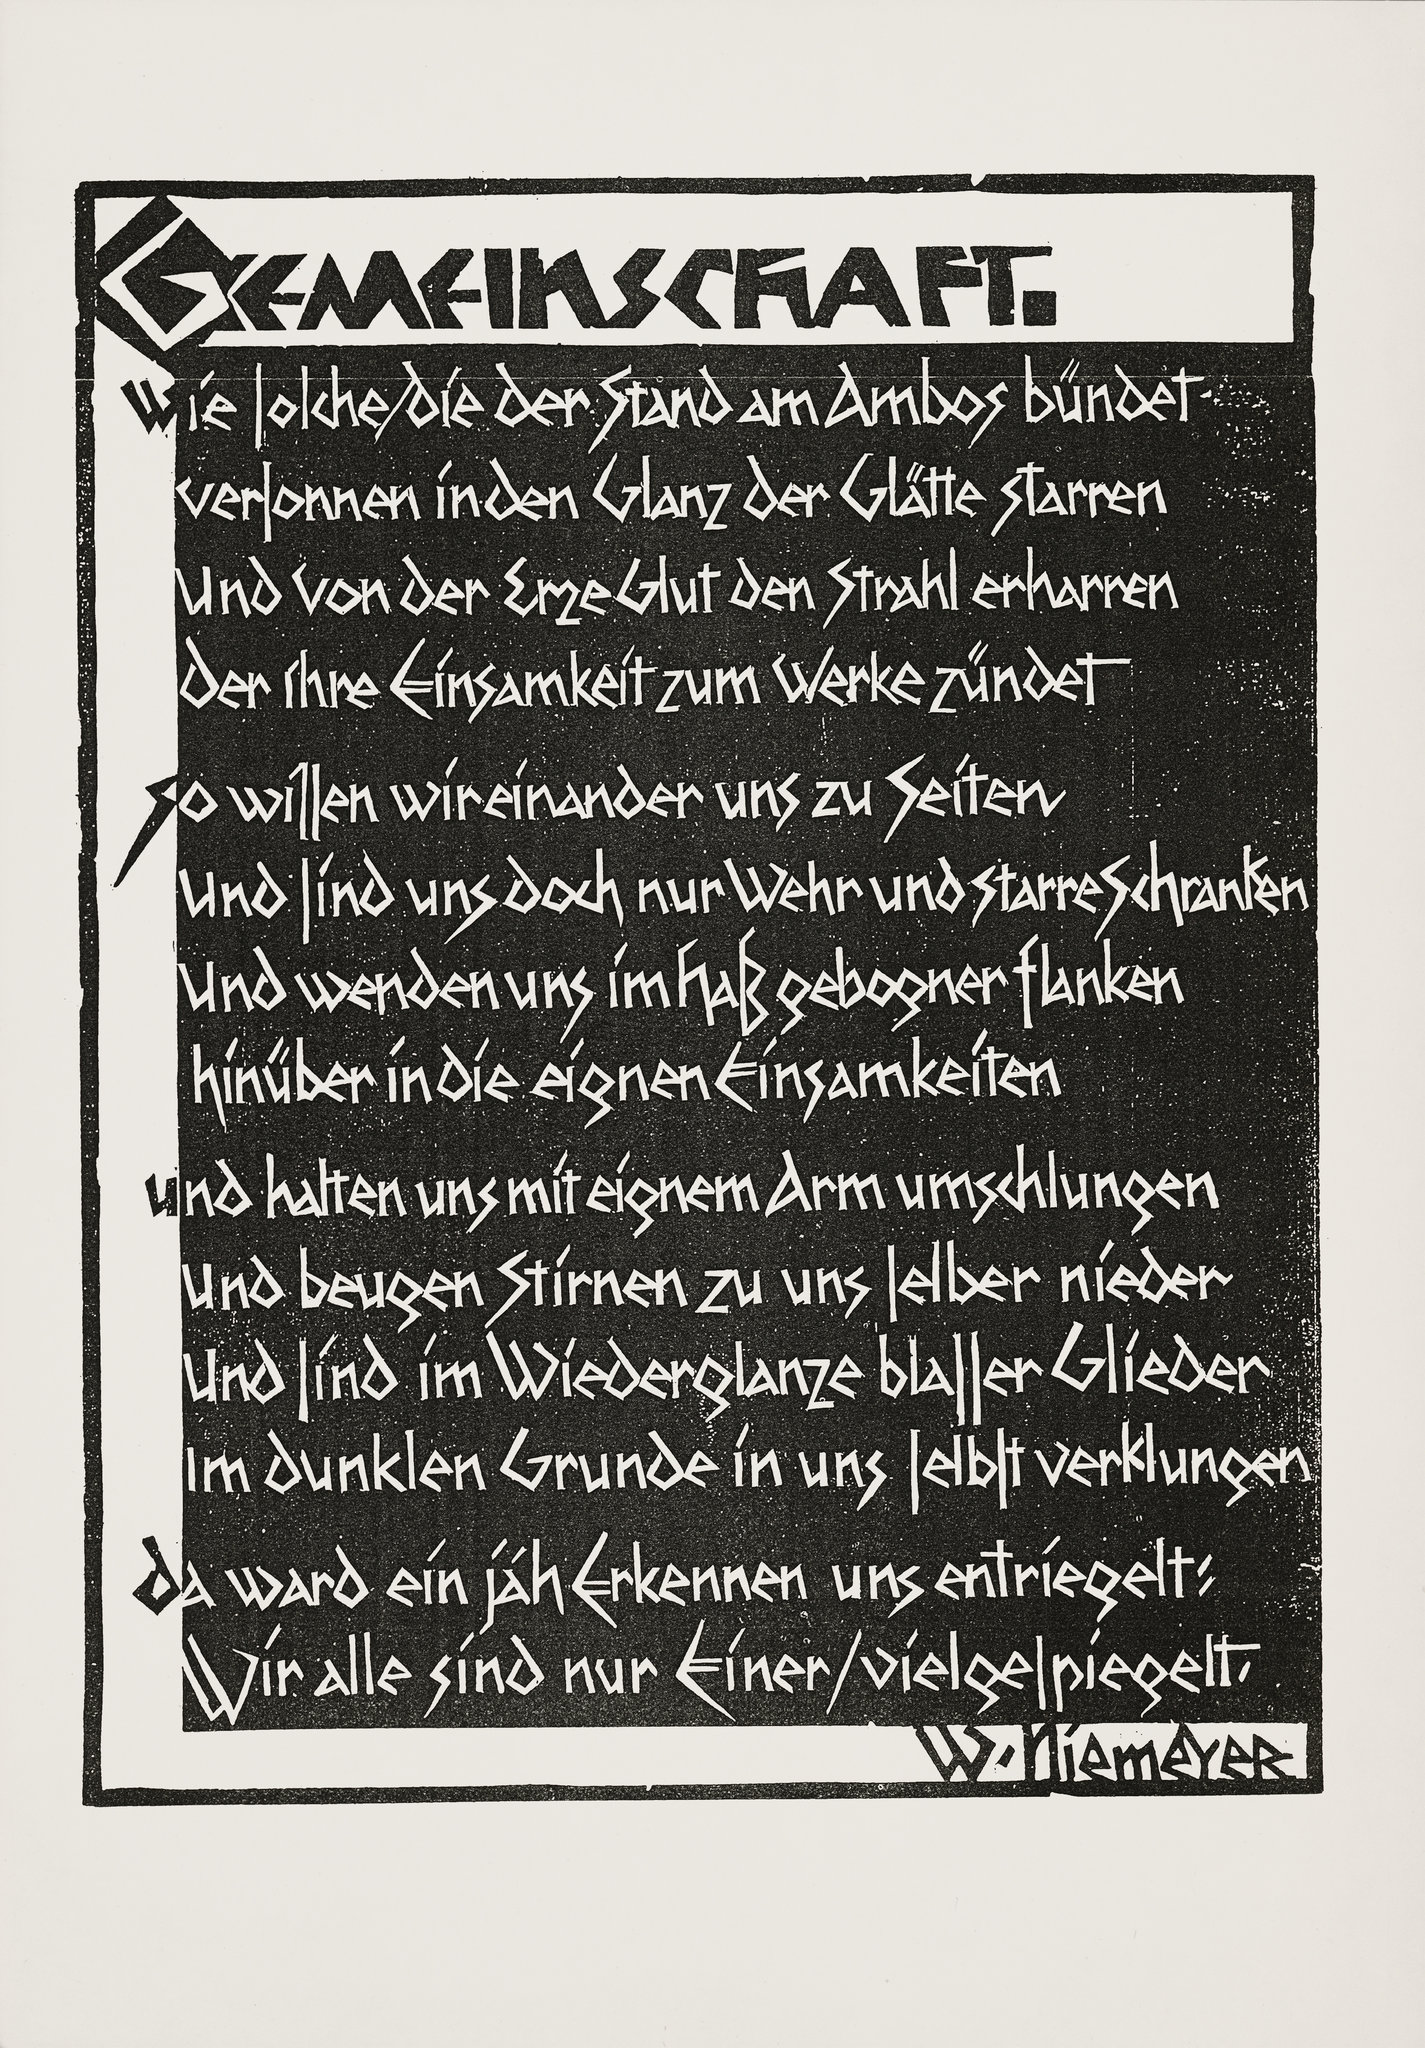 GEMEINSCHAFT.
Wie ſolche/die der Stand am Ambos bündet
verſonnen in den Glanz der Glätte starren
und von der Erze Glut den Strahl erharren
der ihre Einsamkeit zum Werke zündet
So wiſſen wir einander uns zu Seiten
und ſind uns doch nur Wehr und starre Schranken
und wenden uns im Haß gebogner flanken
hinüber in die eignen Einsamkeiten
und halten uns mit eignem Arm umschlungen
und beugen Stirnen zu uns ſelber nieder
und ſind im Wiederglanze blaſſer Glieder
im dunklen Grunde in uns ſelbſt verklungen
da ward ein jäh Erkennen uns entriegelt:
Wir alle sind nur Einer/vielgeſpiegelt.
W. Niemeyer